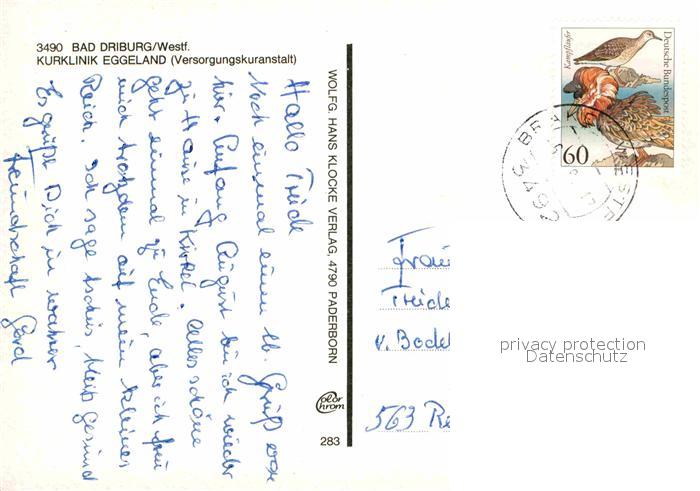 3490 BAD DRIBURG/Westf.
KURKLINIK EGGELAND (Versorgungskuranstalt)
Hallo Friede
Noch einmal einen lb. Gruß von
hier. Anfang August bin ich wieder
zu Hause in Kürten. Alles schöne
geht einmal zu Ende, aber ich freu
mich trotzdem auf mein kleines
Reich. Ich sage tschüs, bleib gesund
Es grüßt Dich in wahrer
Freundschaft Gerd
WOLFG. HANS KLOCKE VERLAG, 4790 PADERBORN
color
chrom
283
Kampfläufer
Deutsche Bundespost
60
BRAK
WESTF
3492
Frau
v. Bodel
563 Re
privacy protection
Datenschutz